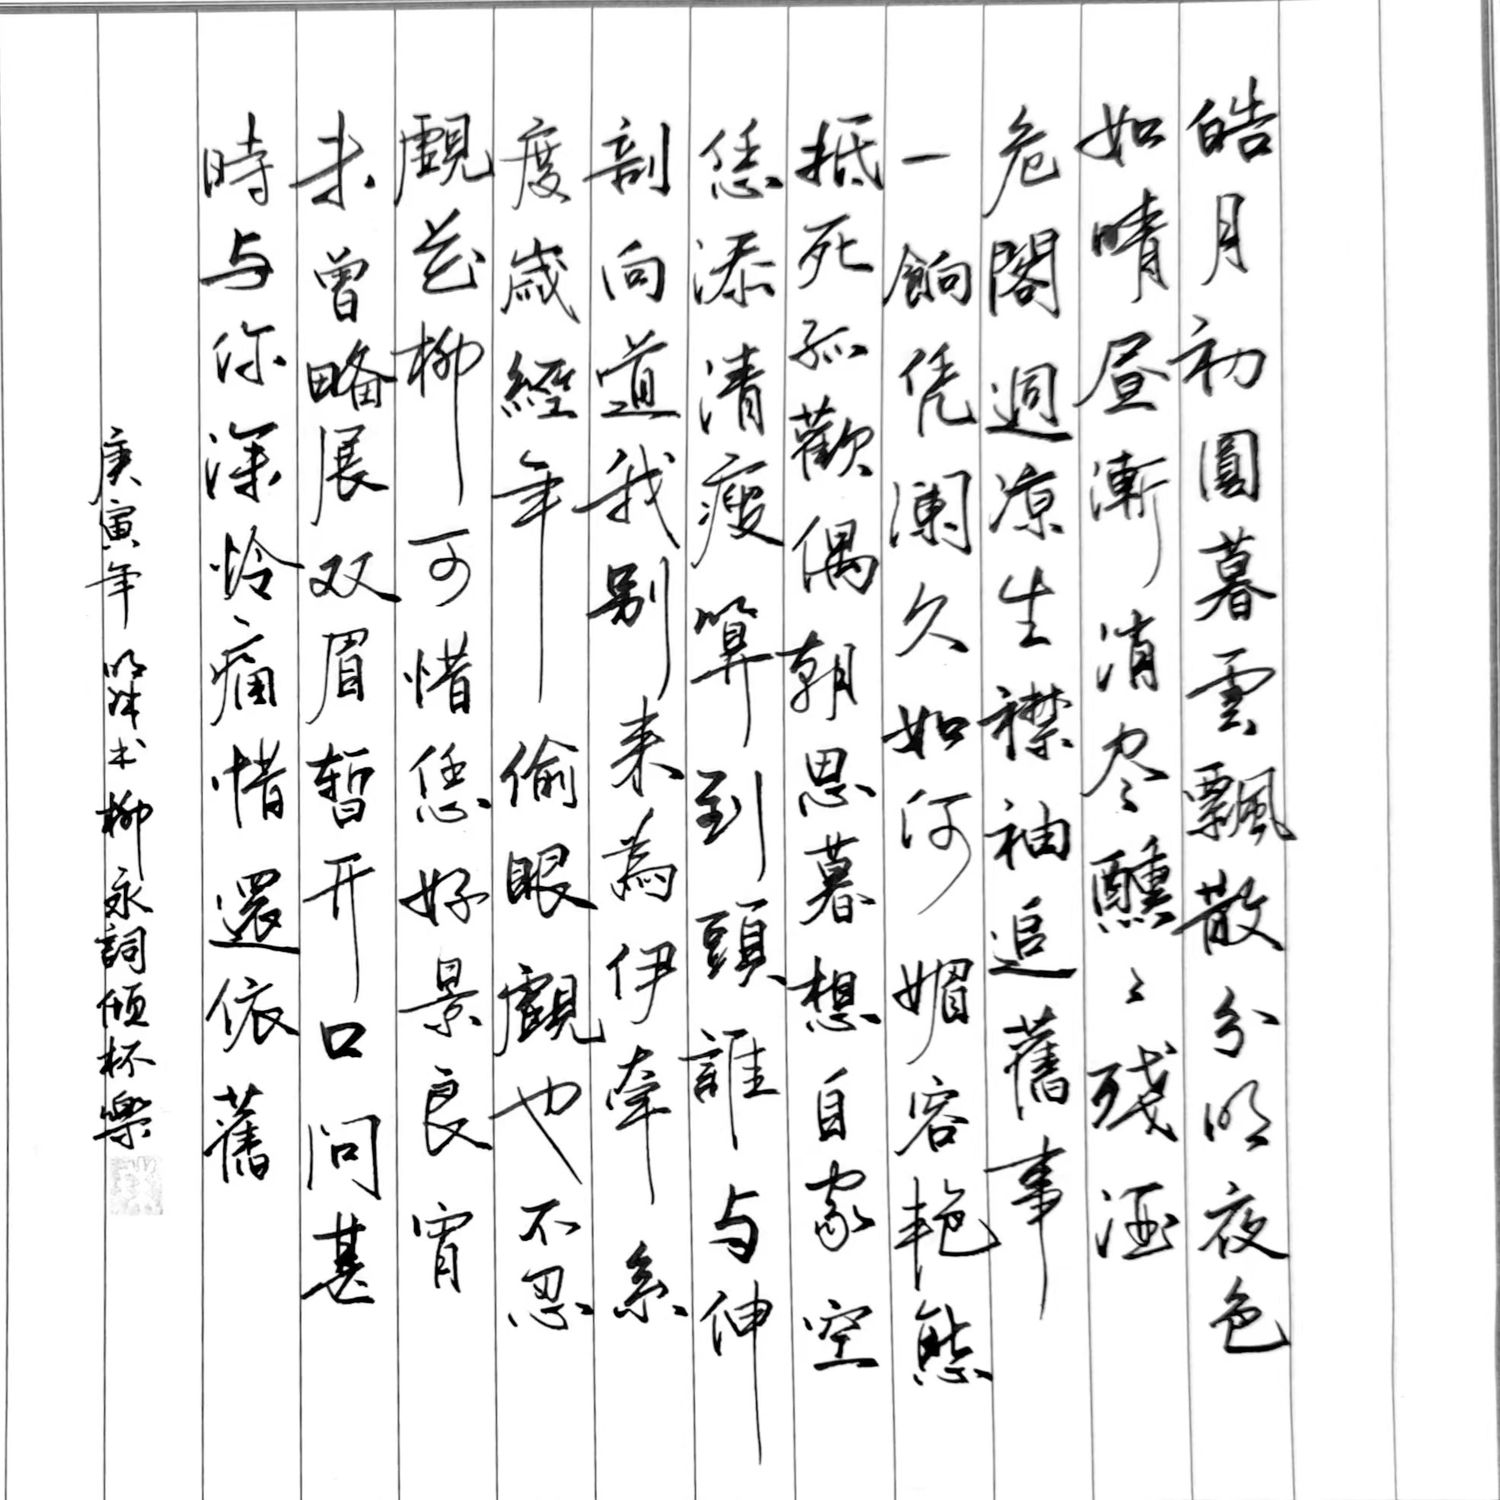 皓月初圓暮雲飄散分明夜色
如晴昼漸消尽醺々残酒
危閣迥凉生襟袖追舊事
一餉凭闌久如何媚容艳態
抵死孤歡偶朝思暮想自家空
恁添清瘦算到頭誰与伸
剖向道我别来為伊牽系
度歲經年偷眼覷也不忍
覷花柳可惜恁好景良宵
未曾略展双眉暂开口问甚
時与你深怜痛惜還依舊
庚寅年 书柳永詞傾杯樂